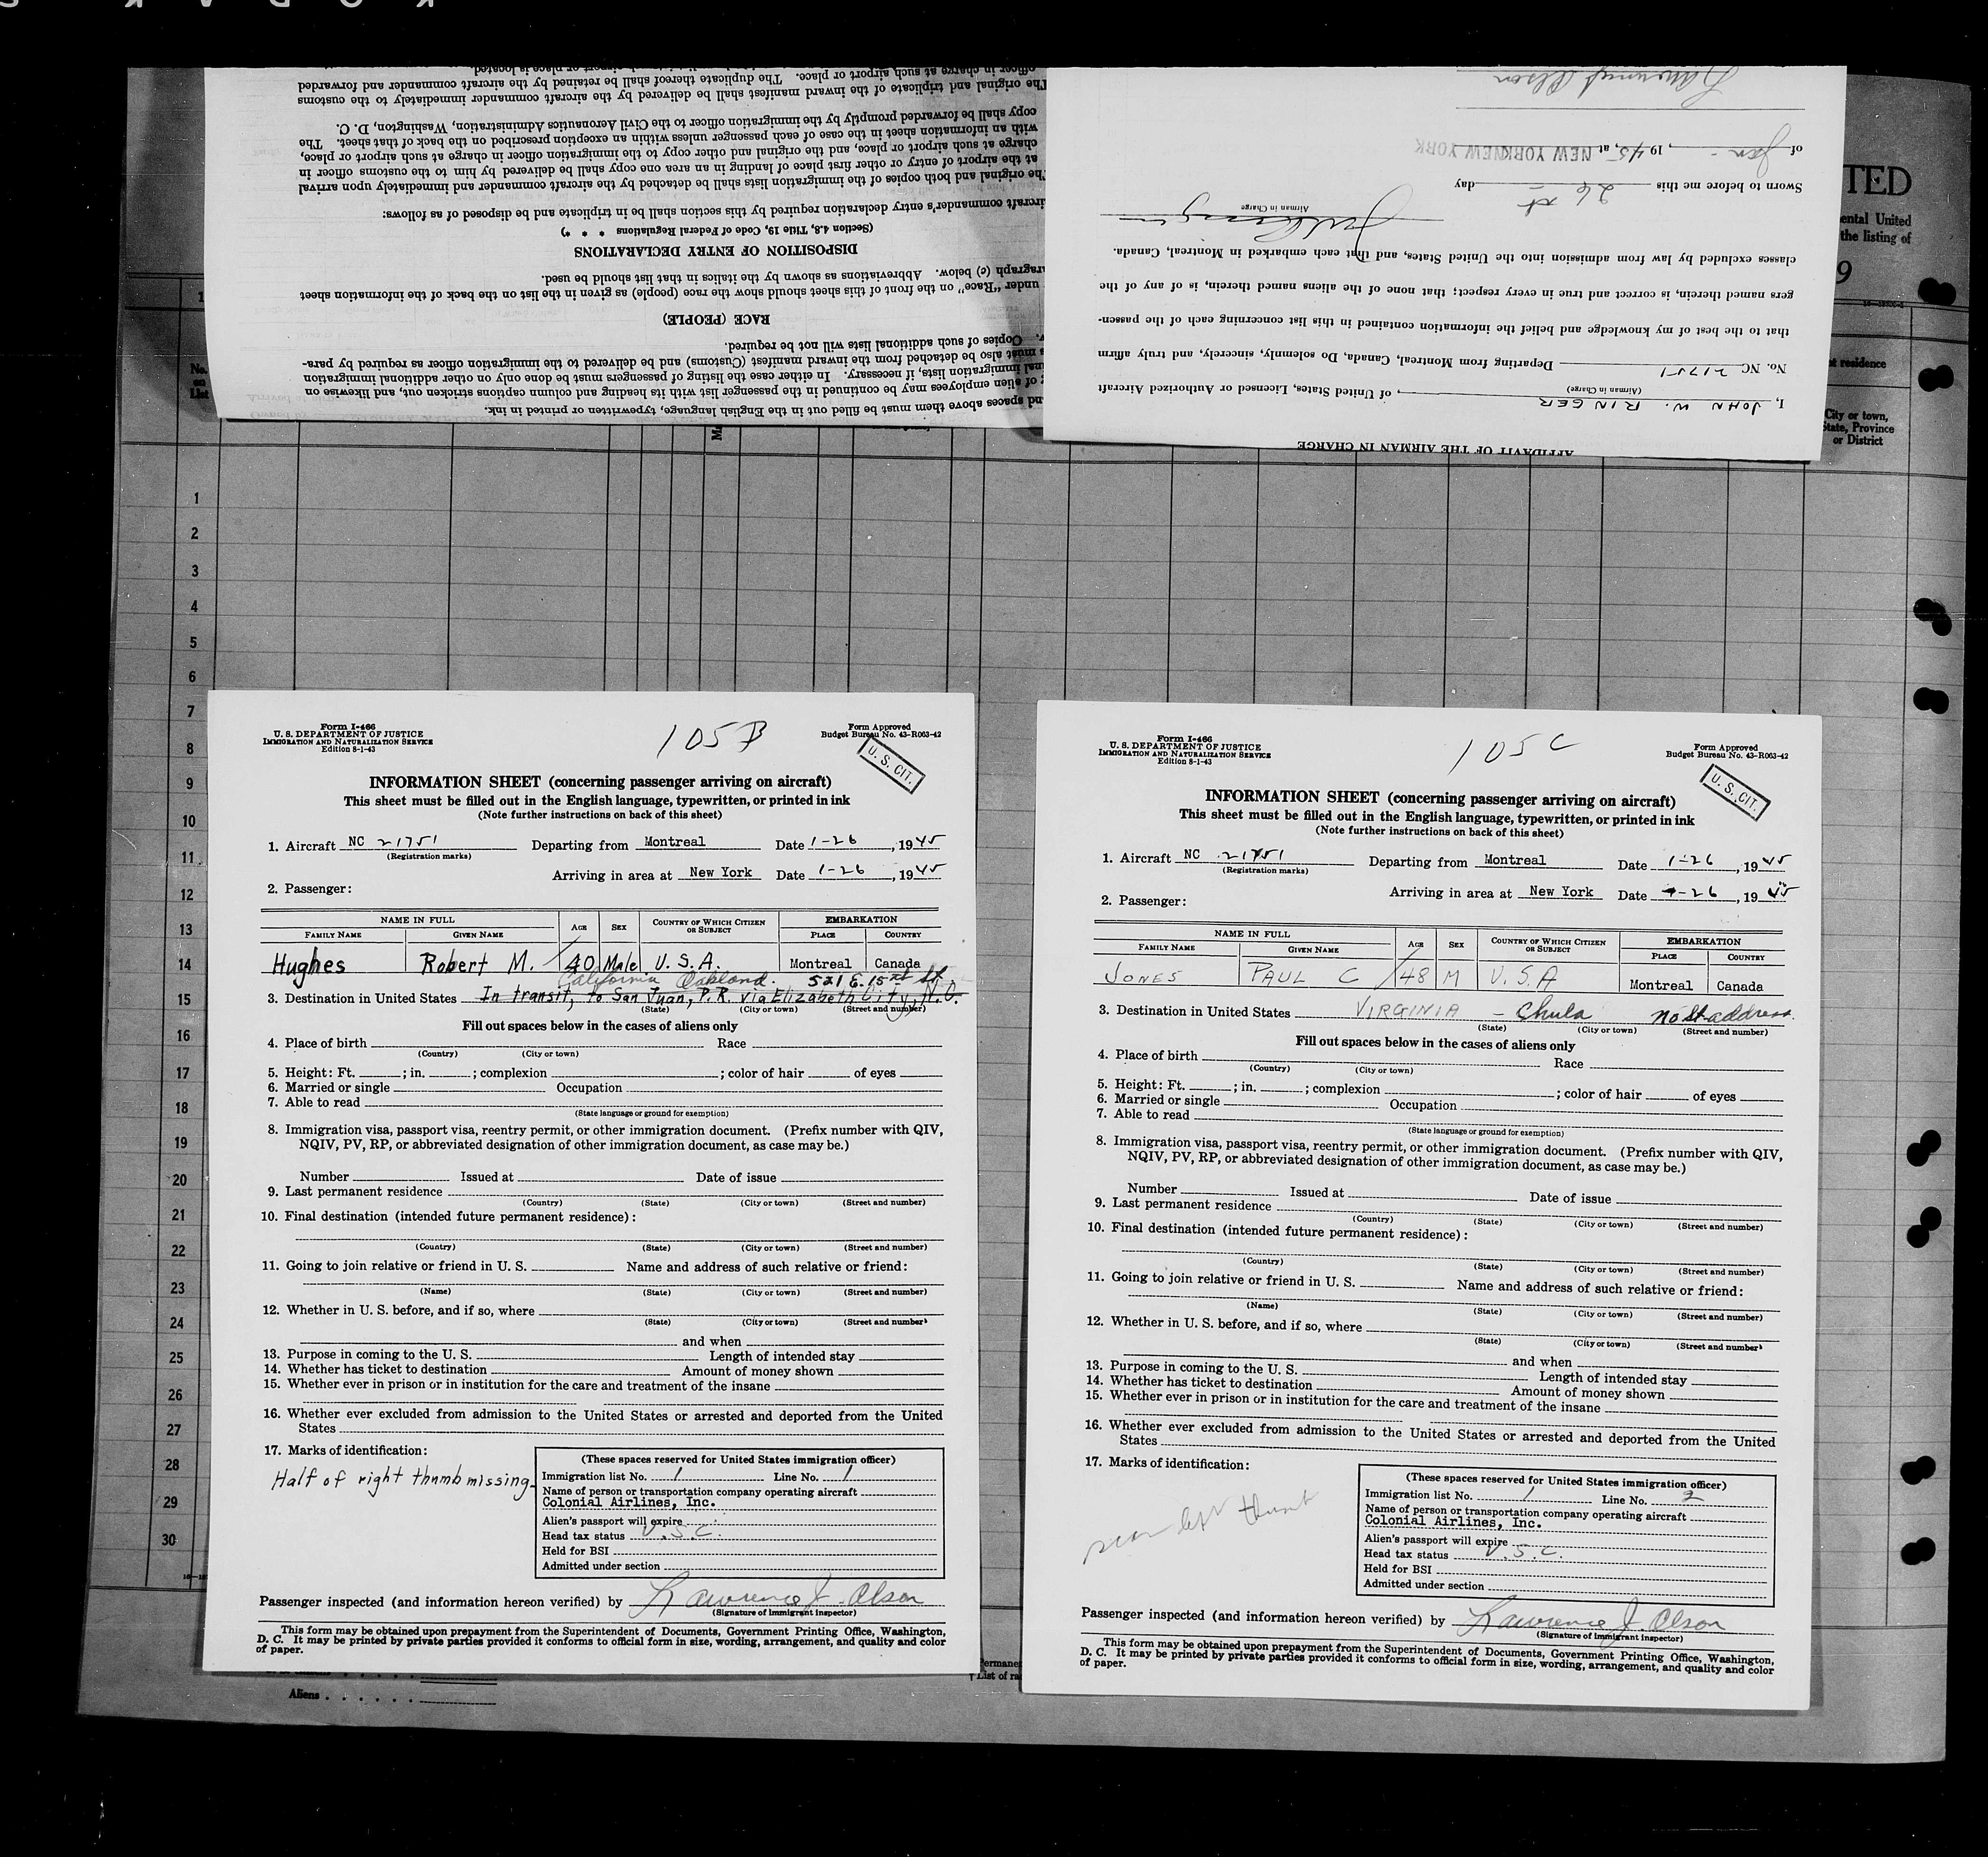 K O D A K S
officer in charge at such airport or place is located.
The original and triplicate of the inward manifest shall be delivered by the aircraft commander immediately to the customs
officer in charge at such airport or place. The duplicate thereof shall be retained by the aircraft commander and forwarded
copy shall be forwarded promptly by the immigration officer to the Civil Aeronautics Administration, Washington, D. C.
with an information sheet in the case of each passenger unless within an exception prescribed on the back of that sheet. The
charge at such airport or place, and the original and other copy to the immigration officer in charge at such airport or place,
at the airport of entry or other first place of landing in an area one copy shall be delivered by him to the customs officer in
The original and both copies of the immigration lists shall be detached by the aircraft commander and immediately upon arrival
aircraft commander's entry declaration required by this section shall be in triplicate and be disposed of as follows:
(Section 4.8, Title 19, Code of Federal Regulations * * *)
DISPOSITION OF ENTRY DECLARATIONS
paragraph (c) below. Abbreviations as shown by the italics in that list should be used.
under "Race" on the front of this sheet should show the race (people) as given in the list on the back of the information sheet
RACE (PEOPLE)
Copies of such additional lists will not be required.
must also be detached from the inward manifest (Customs) and be delivered to the immigration officer as required by para-
immigration lists, if necessary. In either case the listing of passengers must be done only on other additional immigration
of alien employees may be continued in the passenger list with its heading and column captions stricken out, and likewise on
and spaces above them must be filled out in the English language, typewritten or printed in ink.
AFFIDAVIT OF THE AIRMAN IN CHARGE
I, JOHN W. RINGER, of United States, Licensed or Authorized Aircraft
(Airman in Charge)
No. NC 21751 Departing from Montreal, Canada, Do solemnly, sincerely, and truly affirm
that to the best of my knowledge and belief the information contained in this list concerning each of the passen-
gers named therein, is correct and true in every respect; that none of the aliens named therein, is of any of the
classes excluded by law from admission into the United States, and that each embarked in Montreal, Canada.
Airman in Charge
Sworn to before me this 26 day
of Jan, 1945, at NEW YORK NEW YORK
TED
ental United
the listing of
9
residence
City or town,
State, Province
or District
No.
on
List
1
2
3
4
5
6
7
8
9
10
11
12
13
14
15
16
17
18
19
20
21
22
23
24
25
26
27
28
29
30
Form I-466
U. S. DEPARTMENT OF JUSTICE
IMMIGRATION AND NATURALIZATION SERVICE
Edition 8-1-43
105B
Form Approved
Budget Bureau No. 43-R063-42
U. S. CIT.
INFORMATION SHEET (concerning passenger arriving on aircraft)
This sheet must be filled out in the English language, typewritten, or printed in ink
(Note further instructions on back of this sheet)
1. Aircraft NC 21751 Departing from Montreal Date 1-26, 1945
(Registration marks)
Arriving in area at New York Date 1-26, 1945
2. Passenger:
NAME IN FULL AGE SEX COUNTRY OF WHICH CITIZEN OR SUBJECT EMBARKATION
FAMILY NAME GIVEN NAME PLACE COUNTRY
Hughes Robert M. 40 Male U. S. A. Montreal Canada
California Oakland. 521 E. 15th St
3. Destination in United States In transit, to San Juan, P.R. via Elizabeth City, N.C.
(State) (City or town) (Street and number)
Fill out spaces below in the cases of aliens only
4. Place of birth Race
(Country) (City or town)
5. Height: Ft. ; in. ; complexion ; color of hair of eyes
6. Married or single Occupation
7. Able to read
(State language or ground for exemption)
8. Immigration visa, passport visa, reentry permit, or other immigration document. (Prefix number with QIV,
NQIV, PV, RP, or abbreviated designation of other immigration document, as case may be.)
Number Issued at Date of issue
9. Last permanent residence
(Country) (State) (City or town) (Street and number)
10. Final destination (intended future permanent residence):
(Country) (State) (City or town) (Street and number)
11. Going to join relative or friend in U. S. Name and address of such relative or friend:
(Name) (State) (City or town) (Street and number)
12. Whether in U. S. before, and if so, where
(State) (City or town) (Street and number)
and when
13. Purpose in coming to the U. S. Length of intended stay
14. Whether has ticket to destination Amount of money shown
15. Whether ever in prison or in institution for the care and treatment of the insane
16. Whether ever excluded from admission to the United States or arrested and deported from the United
States
17. Marks of identification:
Half of right thumb missing.
(These spaces reserved for United States immigration officer)
Immigration list No. 1 Line No. 1
Name of person or transportation company operating aircraft
Colonial Airlines, Inc.
Alien's passport will expire
Head tax status U.S.C.
Held for BSI
Admitted under section
Passenger inspected (and information hereon verified) by Lawrence J. Olson
(Signature of Immigrant Inspector)
This form may be obtained upon prepayment from the Superintendent of Documents, Government Printing Office, Washington,
D. C. It may be printed by private parties provided it conforms to official form in size, wording, arrangement, and quality and color
of paper.
Aliens
Permane
† List of ra
Form I-466
U. S. DEPARTMENT OF JUSTICE
IMMIGRATION AND NATURALIZATION SERVICE
Edition 8-1-43
105C
Form Approved
Budget Bureau No. 43-R063-42
U. S. CIT.
INFORMATION SHEET (concerning passenger arriving on aircraft)
This sheet must be filled out in the English language, typewritten, or printed in ink
(Note further instructions on back of this sheet)
1. Aircraft NC 21751 Departing from Montreal Date 1-26, 1945
(Registration marks)
Arriving in area at New York Date 1-26, 1945
2. Passenger:
NAME IN FULL AGE SEX COUNTRY OF WHICH CITIZEN OR SUBJECT EMBARKATION
FAMILY NAME GIVEN NAME PLACE COUNTRY
JONES PAUL C 48 M U. S. A Montreal Canada
3. Destination in United States VIRGINIA - Chula no St address.
(State) (City or town) (Street and number)
Fill out spaces below in the cases of aliens only
4. Place of birth Race
(Country) (City or town)
5. Height: Ft. ; in. ; complexion ; color of hair of eyes
6. Married or single Occupation
7. Able to read
(State language or ground for exemption)
8. Immigration visa, passport visa, reentry permit, or other immigration document. (Prefix number with QIV,
NQIV, PV, RP, or abbreviated designation of other immigration document, as case may be.)
Number Issued at Date of issue
9. Last permanent residence
(Country) (State) (City or town) (Street and number)
10. Final destination (intended future permanent residence):
(Country) (State) (City or town) (Street and number)
11. Going to join relative or friend in U. S. Name and address of such relative or friend:
(Name) (State) (City or town) (Street and number)
12. Whether in U. S. before, and if so, where
(State) (City or town) (Street and number)
and when
13. Purpose in coming to the U. S. Length of intended stay
14. Whether has ticket to destination Amount of money shown
15. Whether ever in prison or in institution for the care and treatment of the insane
16. Whether ever excluded from admission to the United States or arrested and deported from the United
States
17. Marks of identification:
scar left thumb
(These spaces reserved for United States immigration officer)
Immigration list No. 1 Line No. 2
Name of person or transportation company operating aircraft
Colonial Airlines, Inc.
Alien's passport will expire
Head tax status U.S.C.
Held for BSI
Admitted under section
Passenger inspected (and information hereon verified) by Lawrence J. Olson
(Signature of Immigrant Inspector)
This form may be obtained upon prepayment from the Superintendent of Documents, Government Printing Office, Washington,
D. C. It may be printed by private parties provided it conforms to official form in size, wording, arrangement, and quality and color
of paper.